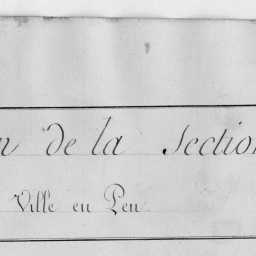 n de la Section
Ville en Peu